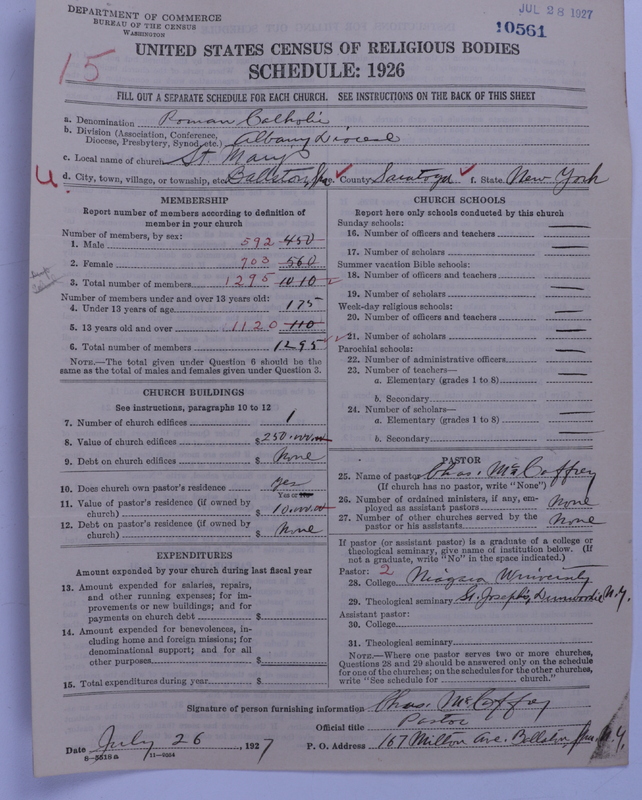 DEPARTMENT OF COMMERCE
BUREAU OF THE CENSUS
WASHINGTON
JUL 28 1927
10561
15
UNITED STATES CENSUS OF RELIGIOUS BODIES
SCHEDULE: 1926
FILL OUT A SEPARATE SCHEDULE FOR EACH CHURCH. SEE INSTRUCTIONS ON THE BACK OF THIS SHEET
a. Denomination Roman Catholic
b. Division (Association, Conference, Diocese, Presbytery, Synod, etc.) Albany Diocese
c. Local name of church St. Mary's
U. d. City, town, village, or township, etc. Ballston Spa e. County Saratoga f. State New York
MEMBERSHIP
Report number of members according to definition of
member in your church
Number of members, by sex:
1. Male 592 450
2. Female 703 560
3. Total number of members 1295 1010
Number of members under and over 13 years old:
4. Under 13 years of age 175
5. 13 years old and over 1120 110
6. Total number of members 1295
NOTE.—The total given under Question 6 should be the
same as the total of males and females given under Question 3.
CHURCH BUILDINGS
See instructions, paragraphs 10 to 12
7. Number of church edifices 1
8. Value of church edifices $250.000.00
9. Debt on church edifices $ None
10. Does church own pastor's residence? yes
Yes or No
11. Value of pastor's residence (if owned by
church) $ 10.000.00
12. Debt on pastor's residence (if owned by
church) $ None
EXPENDITURES
Amount expended by your church during last fiscal year
13. Amount expended for salaries, repairs,
and other running expenses; for im-
provements or new buildings; and for
payments on church debt $
14. Amount expended for benevolences, in-
cluding home and foreign missions; for
denominational support; and for all
other purposes $
15. Total expenditures during year $
CHURCH SCHOOLS
Report here only schools conducted by this church
Sunday schools:
16. Number of officers and teachers
17. Number of scholars
Summer vacation Bible schools:
18. Number of officers and teachers
19. Number of scholars
Week-day religious schools:
20. Number of officers and teachers
21. Number of scholars
Parochial schools:
22. Number of administrative officers
23. Number of teachers—
a. Elementary (grades 1 to 8)
b. Secondary
24. Number of scholars—
a. Elementary (grades 1 to 8)
b. Secondary
PASTOR
25. Name of pastor Chas. McCaffrey
(If church has no pastor, write "None")
26. Number of ordained ministers, if any, em-
ployed as assistant pastors None
27. Number of other churches served by the
pastor or his assistants None
If pastor (or assistant pastor) is a graduate of a college or
theological seminary, give name of institution below. (If
not a graduate, write "No" in the space indicated.)
Pastor: 2
28. College Niagara University
29. Theological seminary St. Joseph's, Dunwoodie N.Y.
Assistant pastor:
30. College
31. Theological seminary
NOTE.—Where one pastor serves two or more churches,
Questions 28 and 29 should be answered only on the schedule
for one of the churches; on the schedules for the other churches,
write "See schedule for church."
Signature of person furnishing information Chas. McCaffrey
Official title Pastor
Date July 26, 1927 P. O. Address 167 Milton Ave. Ballston Spa N.Y.
8-5518a 11-9054